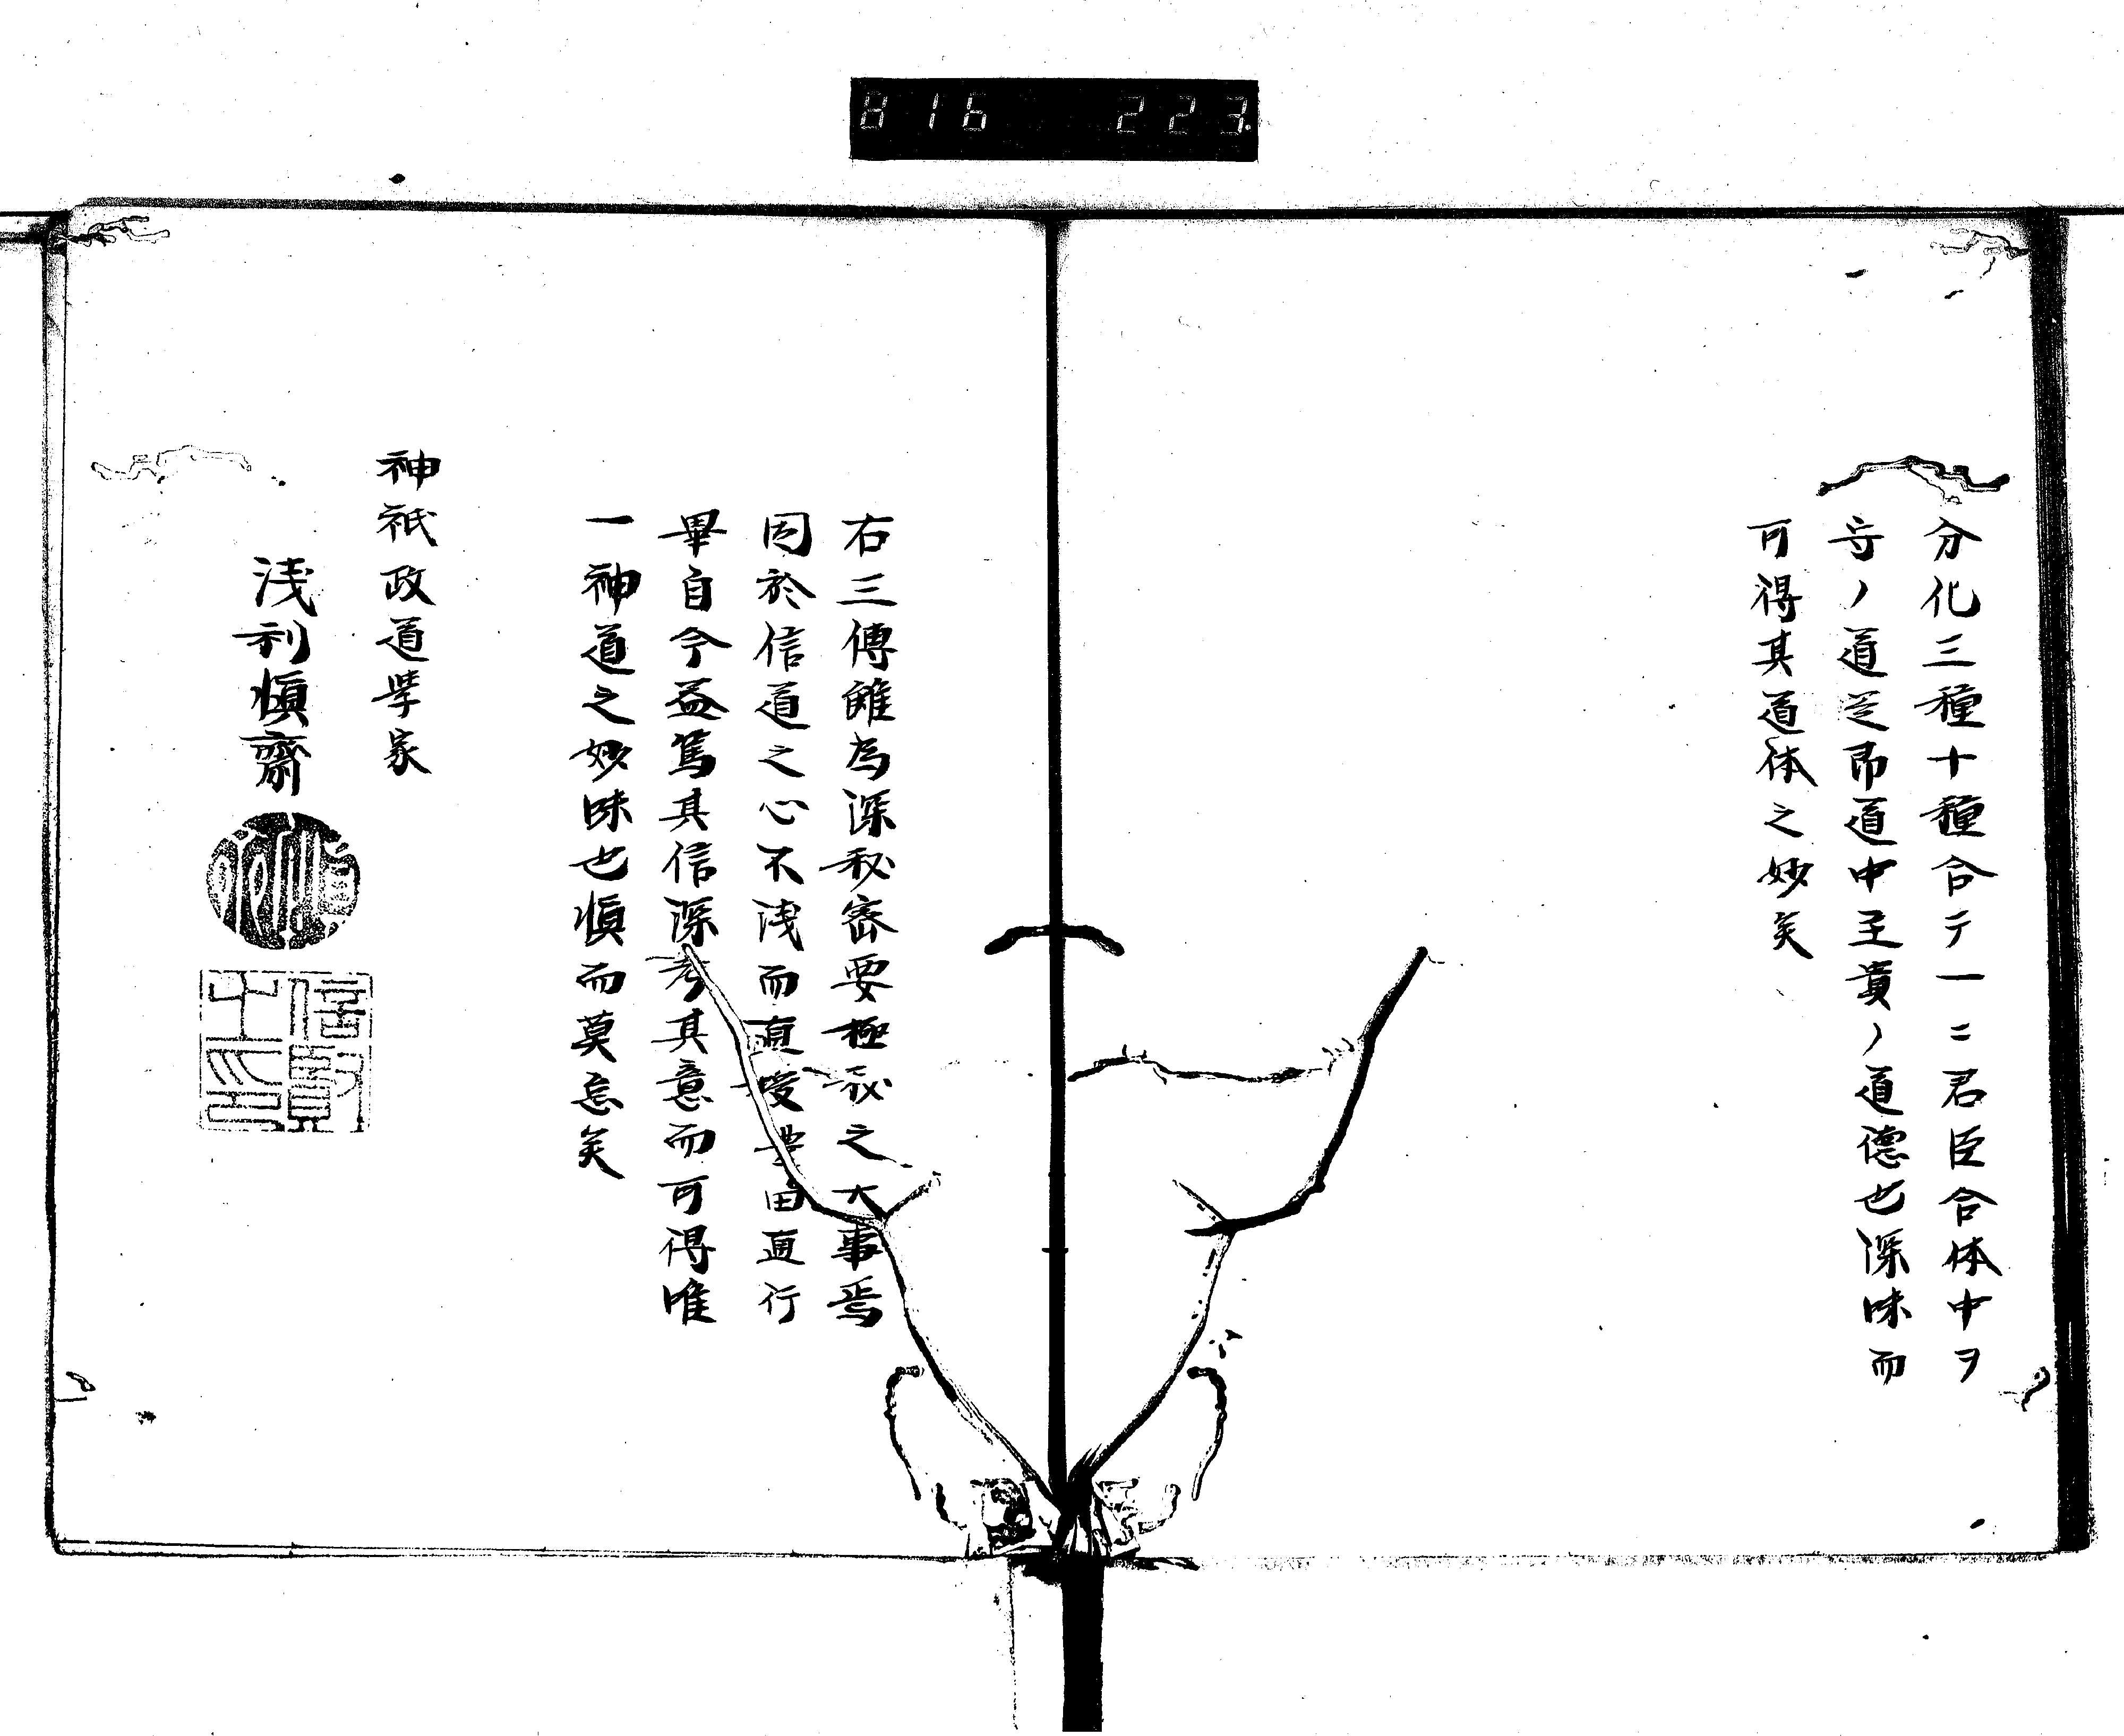 816 223.
分化三種十種合テ一ニ君臣合体中ヲ
守ノ道是即道中至貴ノ道德也深味而
可得其道体之妙矣
右三傳雖為深秘密要極秘之大事焉
因於信道之心不浅而直受豊田直行
畢自今益篤其信深考其意而可得唯
一神道之妙味也慎而莫忘矣
神祇政道学家
浅利慎齋
信賢
之印